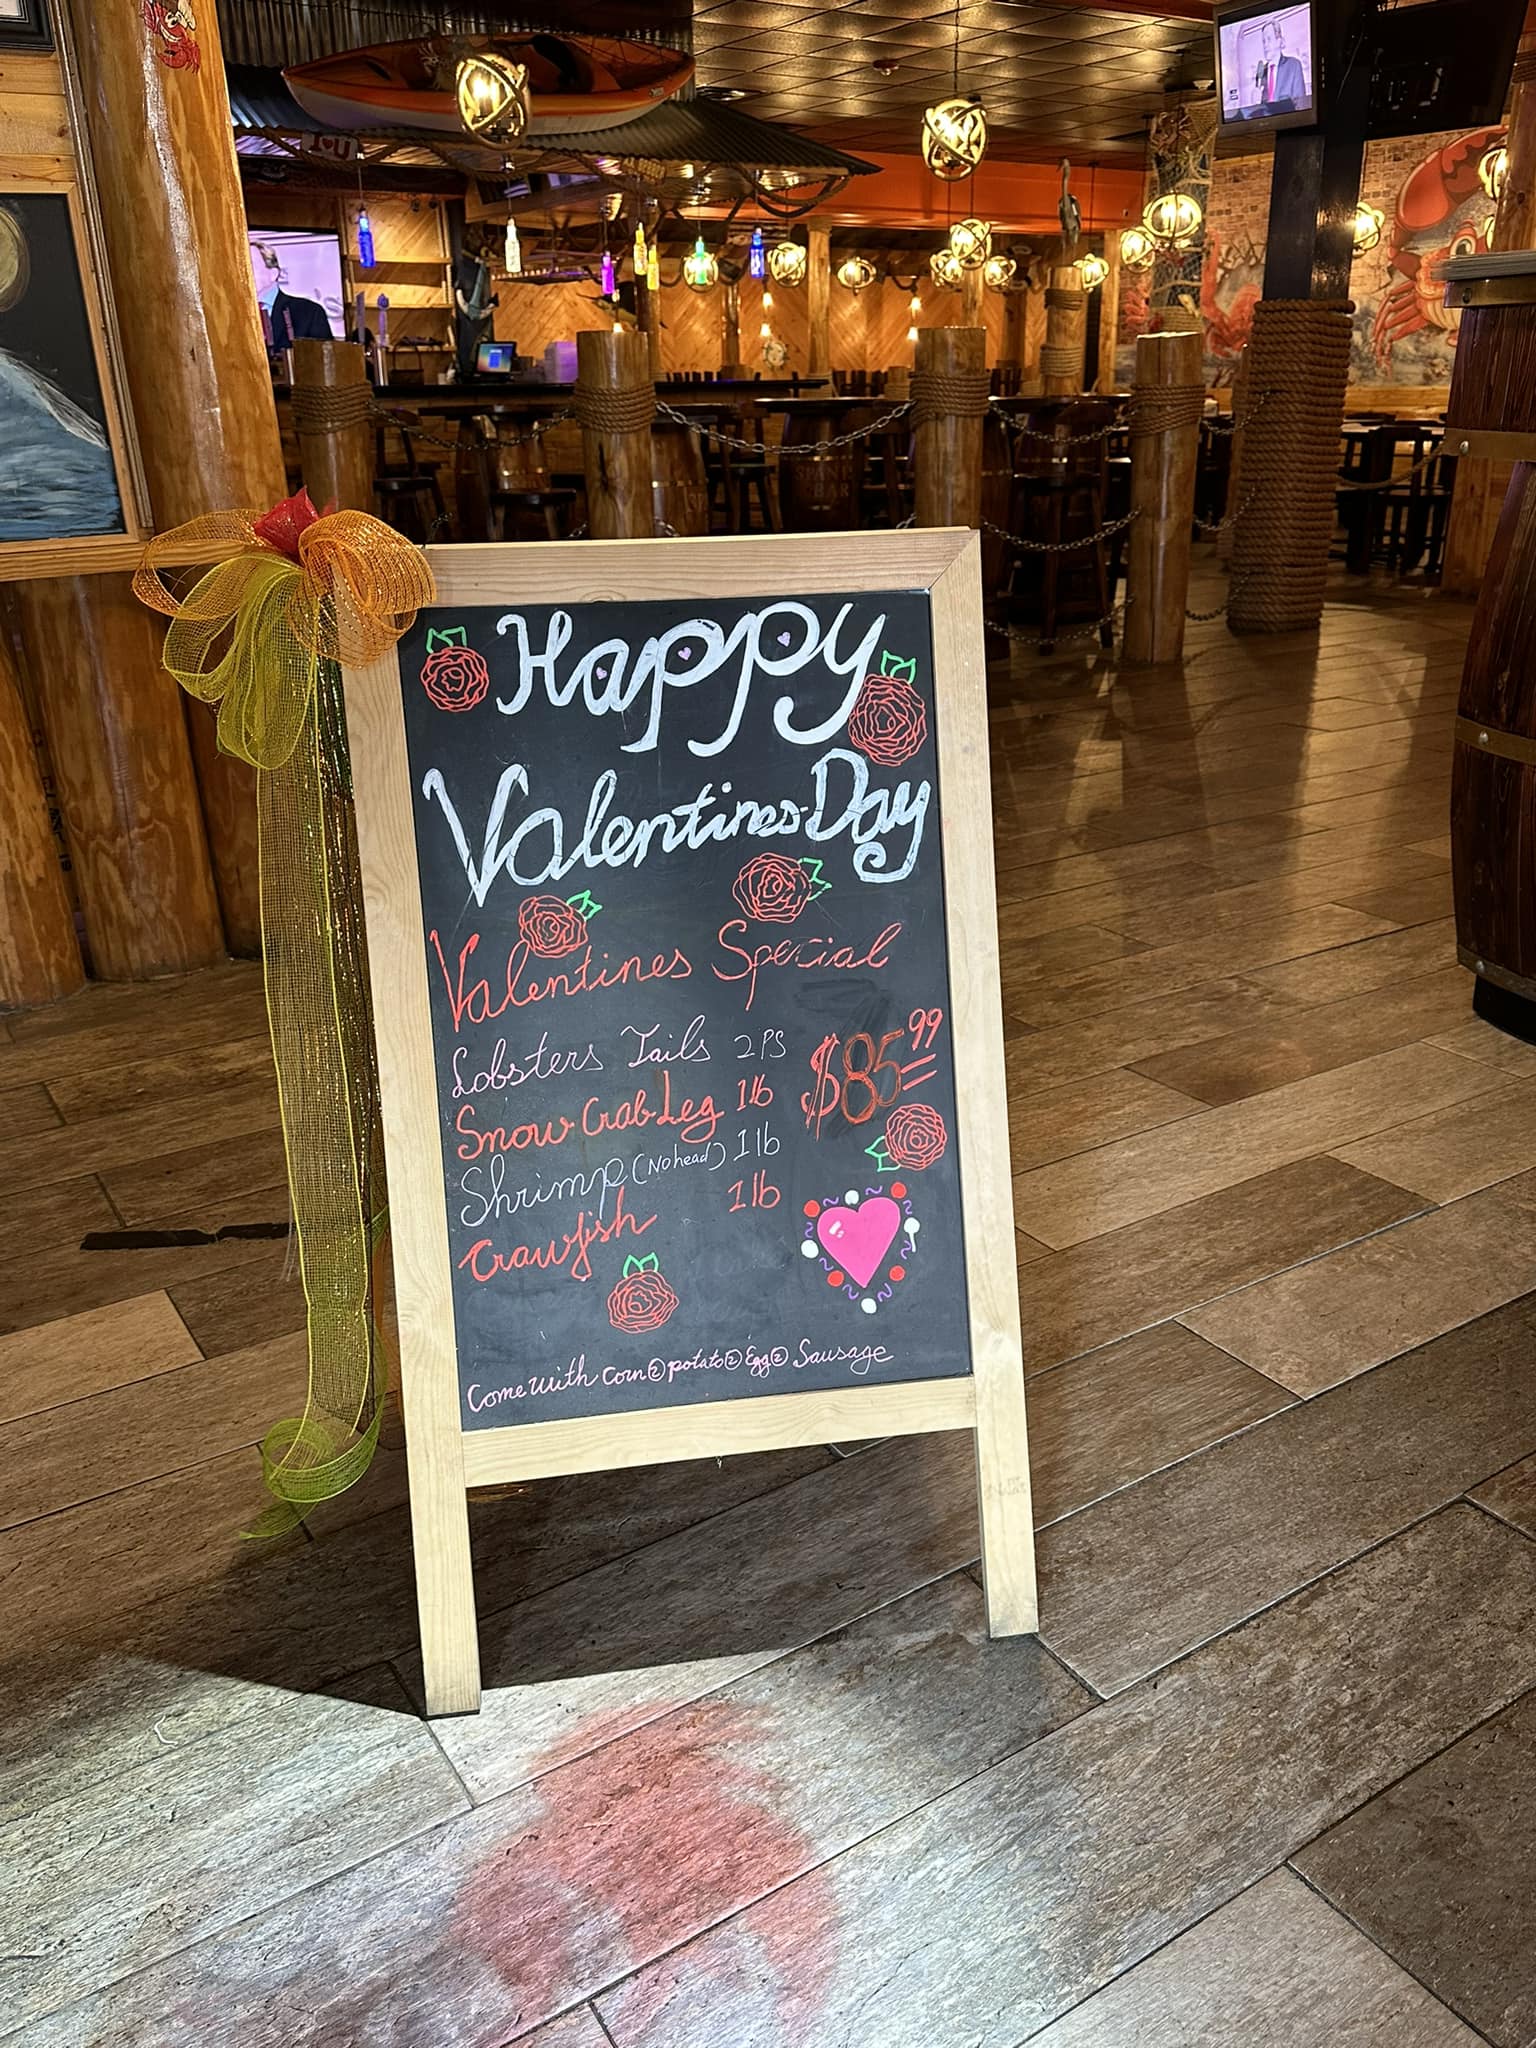 I ♥ U
Happy
Valentines Day
Valentines Special
Lobsters Tails 2PS
$85.99
Snow Crab Leg 1lb
Shrimp (No head) 1lb
Crawfish 1lb
Come with Corn② potato② Egg② Sausage
BAR